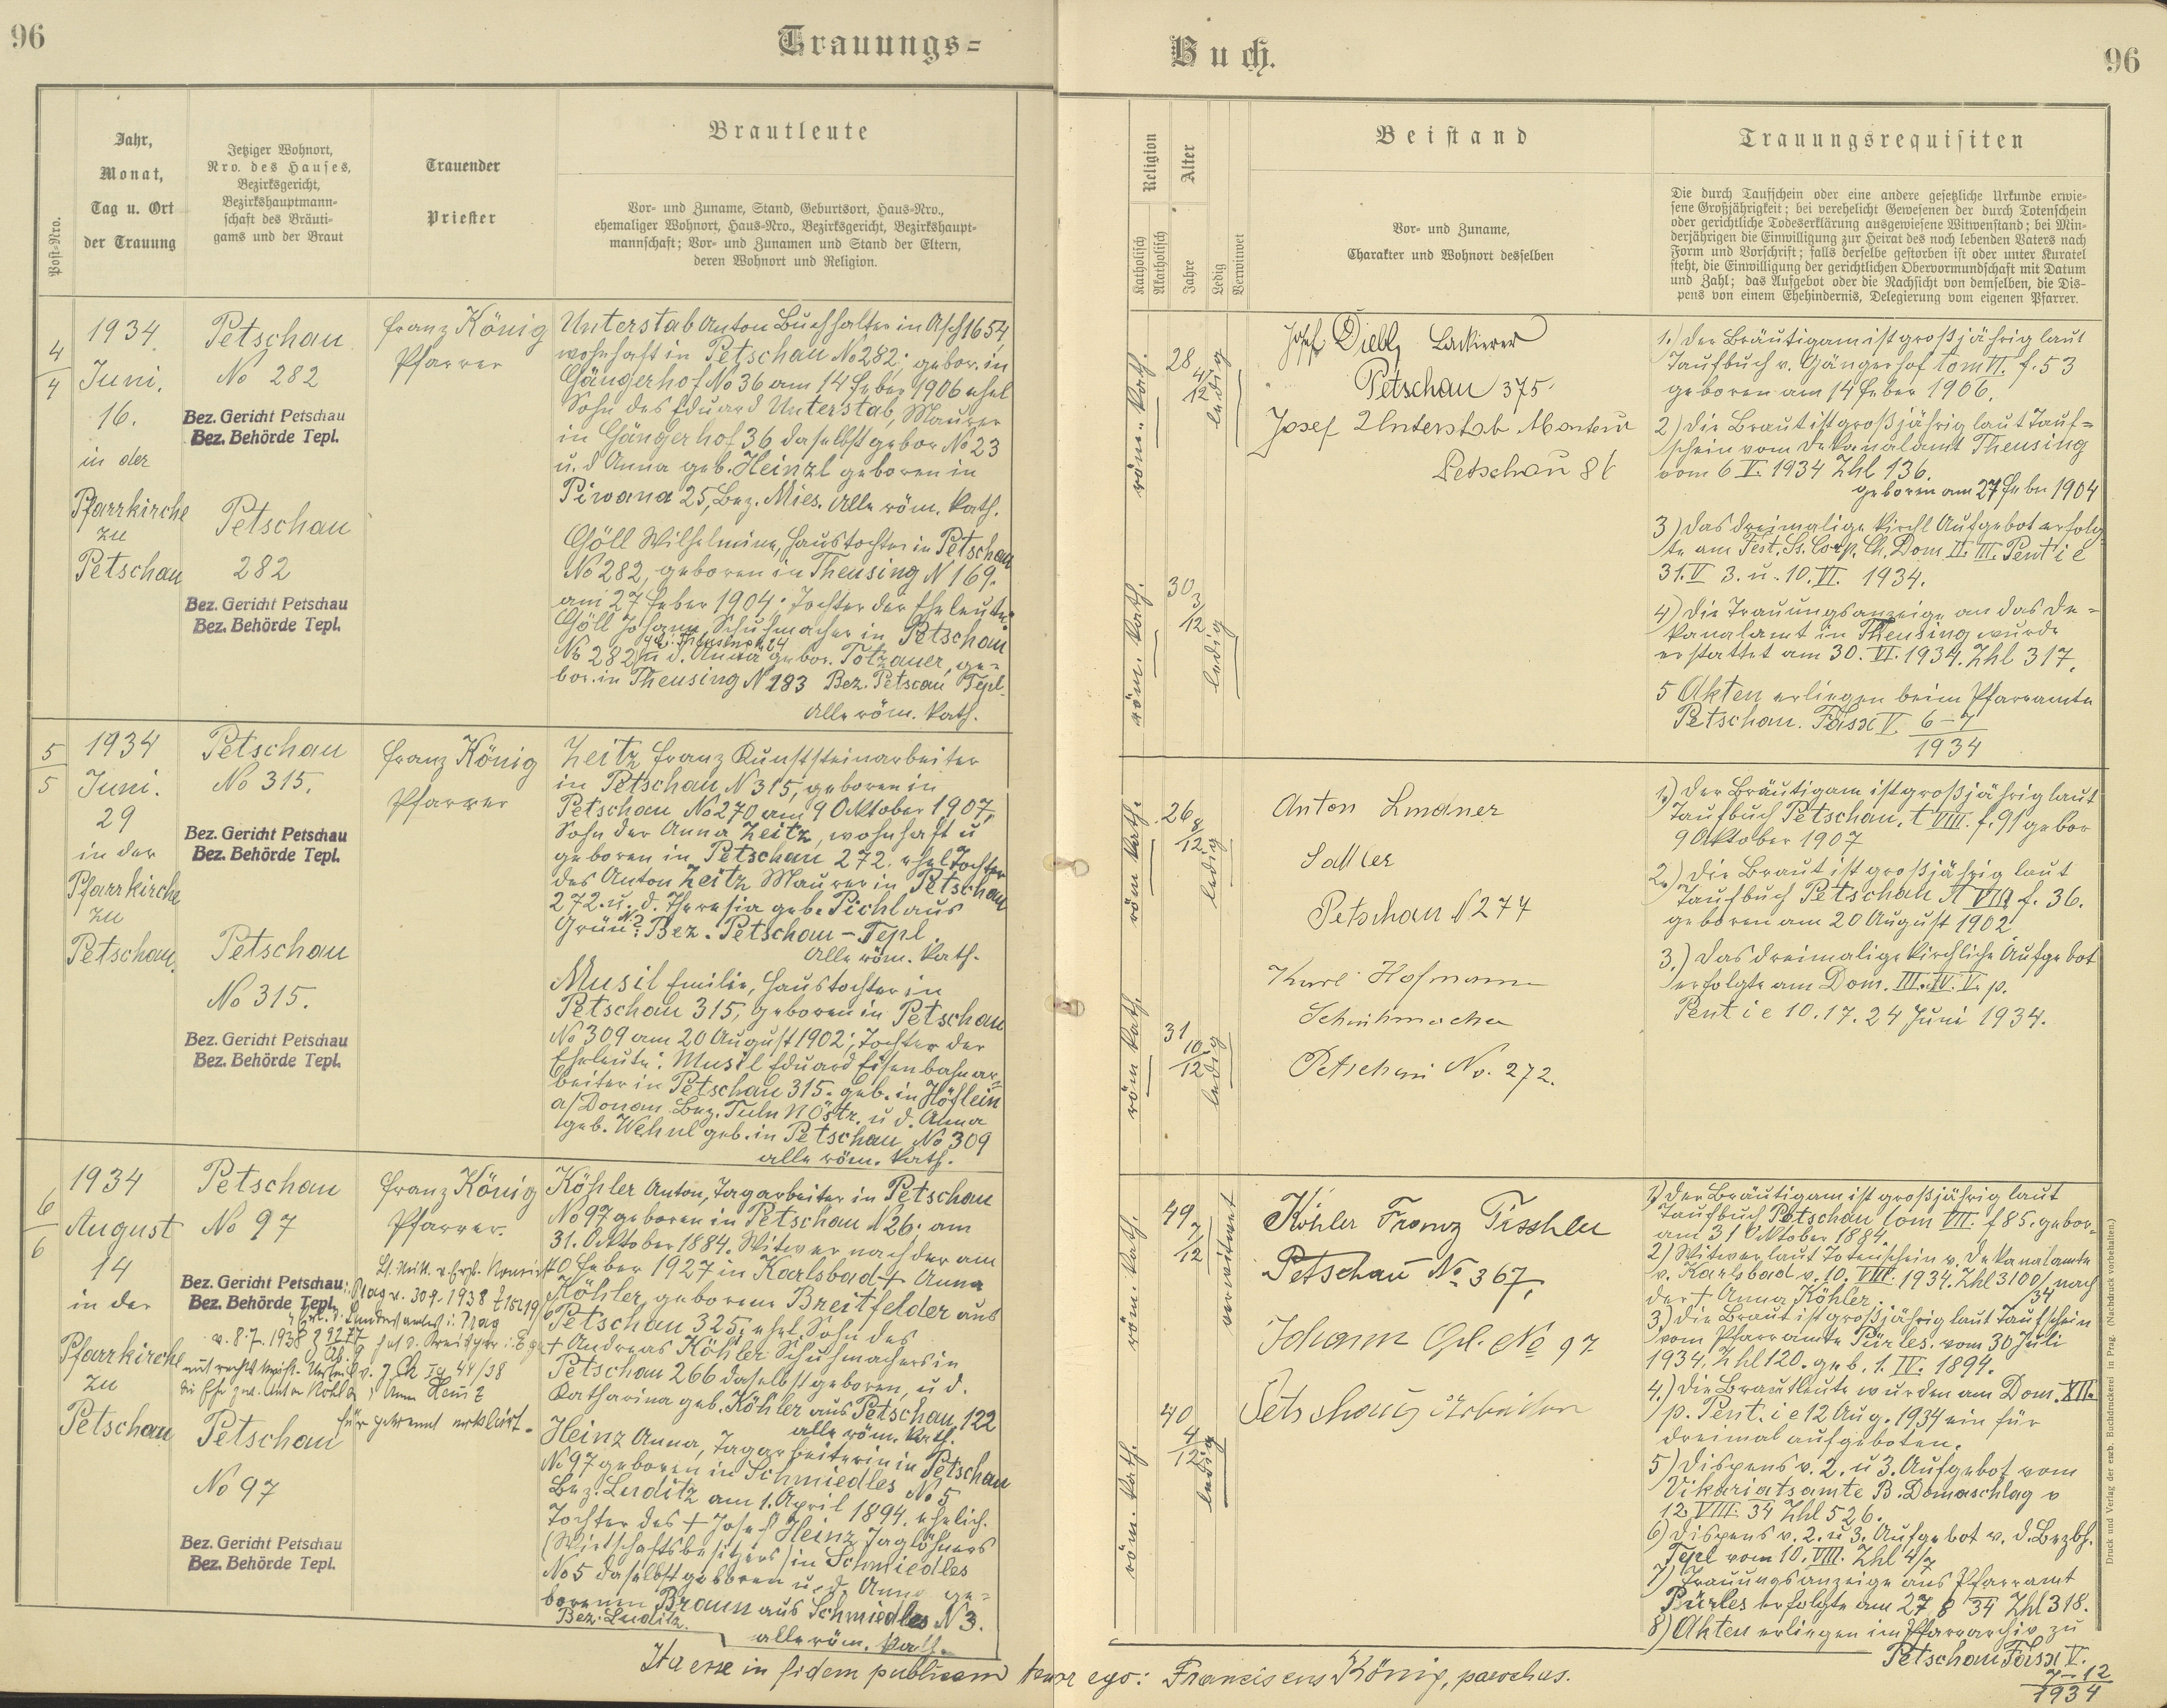 96
Trauungs=
Buch.
96
Post-Nro.
Jahr,
Monat,
Tag u. Ort
der Trauung
Jetziger Wohnort,
Nro. des Hauses,
Bezirksgericht,
Bezirkshauptmann-
schaft des Bräuti-
gams und der Braut
Trauender
Priester
Brautleute
Vor- und Zuname, Stand, Geburtsort, Haus-Nro.,
ehemaliger Wohnort, Haus-Nro., Bezirksgericht, Bezirkshaupt-
mannschaft; Vor- und Zunamen und Stand der Eltern,
deren Wohnort und Religion.
Religion
Katholisch
Akatholisch
Alter
Jahre
Ledig
Verwitwet
Beistand
Vor- und Zuname,
Charakter und Wohnort desselben
Trauungsrequisiten
Die durch Taufschein oder eine andere gesetzliche Urkunde erwie-
sene Großjährigkeit; bei verehelicht Gewesenen der durch Totenschein
oder gerichtliche Todeserklärung ausgewiesene Witwenstand; bei Min-
derjährigen die Einwilligung zur Heirat des noch lebenden Vaters nach
Form und Vorschrift; falls derselbe gestorben ist oder unter Kuratel
steht, die Einwilligung der gerichtlichen Obervormundschaft mit Datum
und Zahl; das Aufgebot oder die Nachsicht von demselben, die Dis-
pens von einem Ehehindernis, Delegierung vom eigenen Pfarrer.
4
4
1934.
Juni.
16.
in der
Pfarrkirche
zu
Petschau
Petschau
No 282
Bez. Gericht Petschau
Bez. Behörde Tepl.
Petschau
282
Bez. Gericht Petschau
Bez. Behörde Tepl.
Franz König
Pfarrer
Unterstab Anton Buchhalter in Asch 1654,
wohnhaft in Petschau No 282; gebor. in
Gängerhof No 36 am 14 Feber 1906 ehel
Sohn des Eduard Unterstab, Maurer
in Gängerhof 36 daselbst gebor No 23
u. d Anna geb. Heinzl geboren in
Piwana 25, Bez. Mies. Alle röm. kath.
Göll Wilhelmine, Haustochter in Petschau
No 282, geboren in Theusing N 169.
am 27 Feber 1904; Tochter der Eheleute:
Göll Johann Schuhmacher in Petschau
No 282 u d. Anna gebor. Totzauer, ge-
bor. in Theusing N 183 Bez. Petscau Tepl.
Alle röm. kath.
röm. kath.
28 4/12
ledig
röm. kath.
30 3/12
ledig
Josef Diebl, Lackierer
Petschau 375.
Josef Unterstab Monteur
Petschau 86
1.) Der Bräutigam ist großjährig laut
Taufbuch v. Gängerhof tom VI. f. 53
geboren am 14 Feber 1906.
2) Die Braut ist großjährig laut Tauf=
schein vom Dekanalamt Theusing
vom 6 V. 1934 Zhl 136.
geboren am 27 Feber 1904
3) Das dreimalige kirchl Aufgebot erfolg
te am Fest. Ss. Corp. Ch. Dom II. III. Pent i e
31. V 3. u. 10. VI. 1934.
4) Die Trauungsanzeige an das De=
kanalamt in Theusing wurde
erstattet am 30. VI. 1934. Zhl 317.
5 Akten erliegen beim Pfarramte
Petschau. Fasx V. 6-7
1934
5
5
1934
Juni.
29
in der
Pfarrkirche
zu
Petschau.
Petschau
No 315.
Bez. Gericht Petschau
Bez. Behörde Tepl.
Petschau
No 315.
Bez. Gericht Petschau
Bez. Behörde Tepl.
Franz König
Pfarrer
Zeitz Franz Kunststeinarbeiter
in Petschau N 315, geboren in
Petschau No 270 am 9 Oktober 1907,
Sohn der Anna Zeitz, wohnhaft u
geboren in Petschau 272. ehel Tochter
des Anton Zeitz Maurer in Petschau
272. u. d. Theresia geb. Pichl aus
Grün N 2 Bez. Petschau - Tepl.
Alle röm. kath.
Musil Emilie, Haustochter in
Petschau 315, geboren in Petschau
No 309 am 20 August 1902; Tochter der
Eheleute: Musil Eduard Eisenbahnar-
beiter in Petschau 315. geb. in Höflein
a/Donau Bez. Tuln N Östr. u d. Anna
geb. Wehnl geb. in Petschau No 309
alle röm. kath.
röm kath.
26 8/12
ledig
röm kath.
31 10/12
ledig
Anton Lindner
Sattler
Petschau N 274
Karl Hofmann
Schuhmacher
Petschau No. 272.
1.) Der Bräutigam ist großjährig laut
Taufbuch Petschau, t VIII. f. 91 gebor
9 Oktober 1907
2.) Die Braut ist großjährig laut
Taufbuch Petschau t VIII f. 36.
geboren am 20 August 1902
3.) Das dreimalige kirchliche Aufgebot
erfolgte am Dom. III. IV. V. p.
Pent i e 10. 17. 24 Juni 1934.
6
6
1934
August
14
in der
Pfarrkirche
zu
Petschau
Petschau
No 97
Bez. Gericht Petschau
Bez. Behörde Tepl.
Petschau
No 97
Bez. Gericht Petschau
Bez. Behörde Tepl.
Franz König
Pfarrer.
für getrennt erklärt.
Köhler Anton, Tagarbeiter in Petschau
No 97 geboren in Petschau N 26. am
31. Oktober 1884. Witwer nach der am
10 Feber 1927 in Karlsbad + Anna
Köhler, geborene Breitfelder aus
Petschau 325; ehel. Sohn des
+ Andreas Köhler Schuhmachers in
Petschau 266 daselbst geboren, u d.
Katharina geb. Köhler aus Petschau 122
alle röm. kath.
Heinz Anna, Tagarbeiterin in Petschau
No 97 geboren in Schmiedles No 5
Bez. Luditz am 1. April 1894. ehelich.
Tochter des + Josef Heinz Taglöhners
(Wirtschaftsbesitzers) in Schmiedles
No 5 daselbst geboren u. d. Anna ge=
borenen Braun aus Schmiedles N 3.
Bez: Luditz.
alle röm. kath.
röm. kath.
49 7/12
verwitwet
röm. kath.
40 4/12
ledig
Köhler Franz Tischler
Petschau No 367.
Johann Gl. No 97
Petschau Arbeiter
1) Der Bräutigam ist großjährig laut
Taufbuch Petschau tom VII. f 85. gebor.
am 31 Oktober 1884.
2) Witwer laut Totenschein v. Dekanalamte
v. Karlsbad v. 10. VIII. 1934. Zhl 3100/34 nach
der + Anna Köhler.
3) Die Braut ist großjährig laut Taufschein
vom Pfarramte Pürles. vom 30 Juli
1934. Zhl 120. geb. 1. IV. 1894.
4.) Die Brautleute wurden am Dom. XII.
p. Pent. i e 12 Aug. 1934 ein für
dreimal aufgeboten.
5) Dispens v. 2. u 3. Aufgebot vom
Vikariatsamte B. Domaschlag v
12 VIII. 34 Zhl 526.
6) Dispens v. 2. u 3. Aufgebot v. d. Bezbh.
Tepl vom 10. VIII. Zhl 4/7
7) Trauungsanzeige ans Pfarramt
Pürles erfolgte am 27 8 34 Zhl 318.
8) Akten erliegen im Pfarrarchiv zu
Petschau Fasx V.
7-12
1934
Ita esse in fidem publicam testor ego: Franciscus König, parochus.
Druck und Verlag der erzb. Buchdruckerei in Prag. (Nachdruck vorbehalten.)